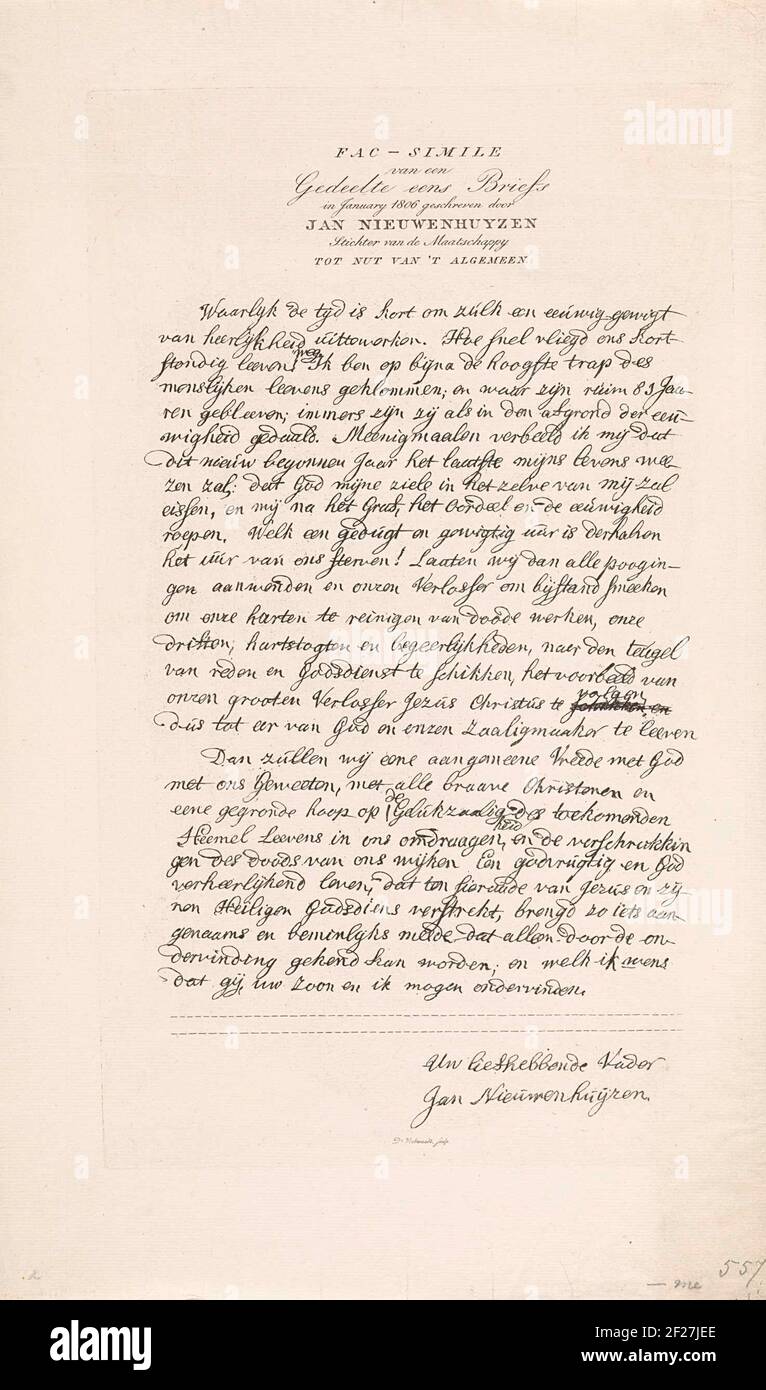 FAC-SIMILE
van een
Gedeelte eens Briefs
in January 1806 geschreven door
JAN NIEUWENHUYZEN
Stichter van de Maatschappy
TOT NUT VAN 'T ALGEMEEN
Waarlyk de tyd is kort om zulk een eeuwig gewigt
van heerlykheid uittewerken. Hoe snel vliegd ons kort
stondig leeven weg! Ik ben op bijna de hoogste trap des
menslijken leevens geklommen; en waar zijn ruim 81 Jaa-
ren gebleeven; immers zijn zij als in den afgrond der eeu-
wigheid gedaald. Meenigmaalen verbeeld ik mij dat
dit nieuw begonnen Jaar het laatste mijns levens wee-
zen zal: dat God mijne ziele in het zelve van mij zal
eissen, en mij na het Graf, het Oordeel en de eeuwigheid
roepen. Welk een gedugt en gewigtig uur is derhalven
het uur van ons sterven! Laaten wij dan alle poogin-
gen aanwenden en onzen Verlosser om bijstand smeeken
om onze harten te reinigen van doode werken, onze
driften, hartstogten en begeerlijkheden, naer den teugel
van reden en Godsdienst te schikken, het voorbeeld van
onzen grooten Verlosser Jezus Christus te volgen
dus tot eer van God en onzen Zaaligmaaker te leeven
Dan zullen wij eene aangemeene Vreede met God
met ons Geweeten, met alle braave Christenen en
eene gegronde hoop op de Gelukzaaligheid des toekomenden
Heemel Leevens in ons omdraagen, en de verschrikkin
gen des doods van ons wijken Een godvrugtig en God
verheerlijkend leven, dat ten sieraade van Jezus en zij
nen Heiligen Godsdiens verstrekt, brengd zo iets aan-
genaams en beminlijks mede dat alleen door de on-
dervinding gekend kan worden; en welk ik wens
dat gij, uw zoon en ik mogen ondervinden.
Uw liefhebbende Vader
Jan Nieuwenhuijzen.
sculp.
557
me
alamy
alamy
Image ID: 2F27JEE
www.alamy.com